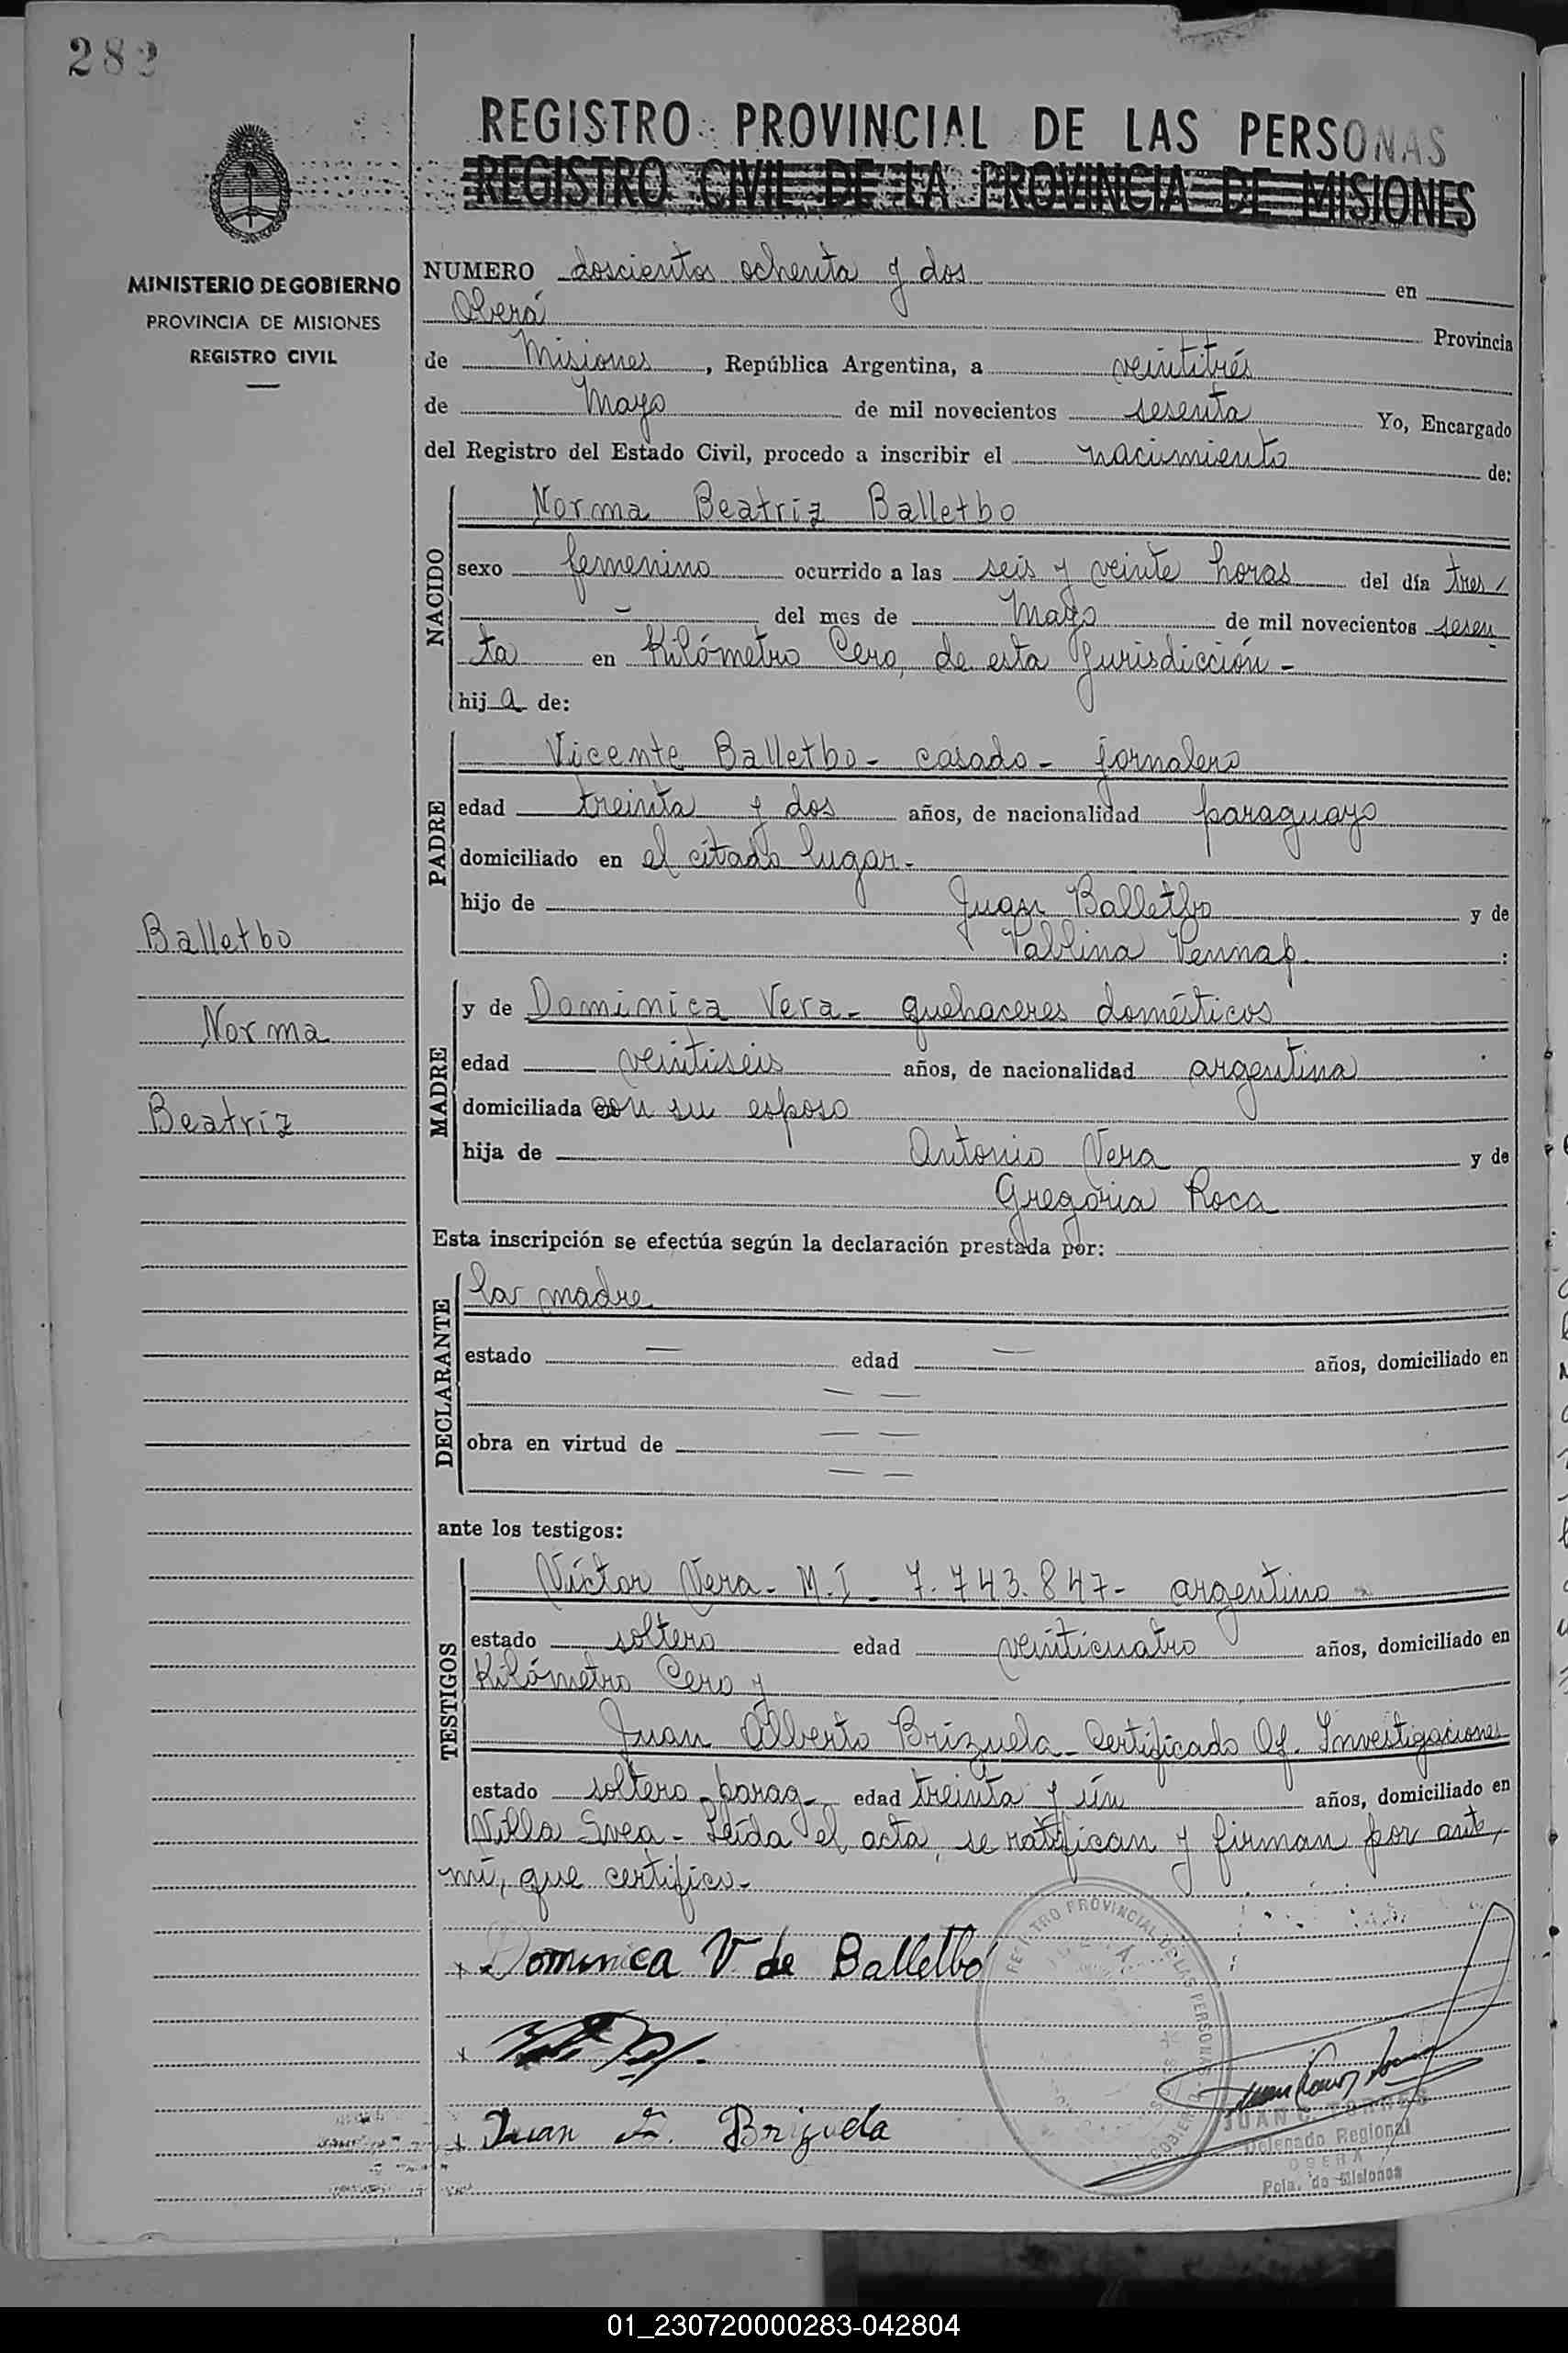 282
REGISTRO PROVINCIAL DE LAS PERSONAS
REGISTRO CIVIL DE LA PROVINCIA DE MISIONES
MINISTERIO DE GOBIERNO
PROVINCIA DE MISIONES
REGISTRO CIVIL
NUMERO doscientos ochenta y dos en
Oberá Provincia
de Misiones, República Argentina, a veintitrés
de Mayo de mil novecientos sesenta Yo, Encargado
del Registro del Estado Civil, procedo a inscribir el nacimiento de:
NACIDO
Norma Beatriz Balletbo
sexo femenino ocurrido a las seis y veinte horas del día tres
del mes de Mayo de mil novecientos sesen
ta en Kilómetro Cero, de esta Jurisdicción -
hij a de:
PADRE
Vicente Balletbo - casado - jornalero
edad treinta y dos años, de nacionalidad paraguayo
domiciliado en el citado lugar.
hijo de Juan Balletbo y de
Pablina :
MADRE
y de Dominica Vera - quehaceres domésticos
edad veintiseis años, de nacionalidad argentina
domiciliada con su esposo
hija de Antonio Vera y de
Gregoria Roca
Balletbo
Norma
Beatriz
Esta inscripción se efectúa según la declaración prestada por:
DECLARANTE
la madre
estado — edad — años, domiciliado en
— —
obra en virtud de — —
— —
ante los testigos:
TESTIGOS
Víctor Vera - M.I. 7.743.847 - argentino
estado soltero edad veinticuatro años, domiciliado en
Kilómetro Cero y
Juan Alberto Brizuela - Certificado Of. Investigaciones
estado soltero parag. edad treinta y ún años, domiciliado en
Villa Svea - Leída el acta, se ratifican y firman por ante
mí, que certifico -
Dominica V. de Balletbó
Juan Brizuela
REGISTRO PROVINCIAL DE LAS PERSONAS
JUAN C. TORRES
Delegado Regional
OBERA
Pcia. de Misiones
01_230720000283-042804